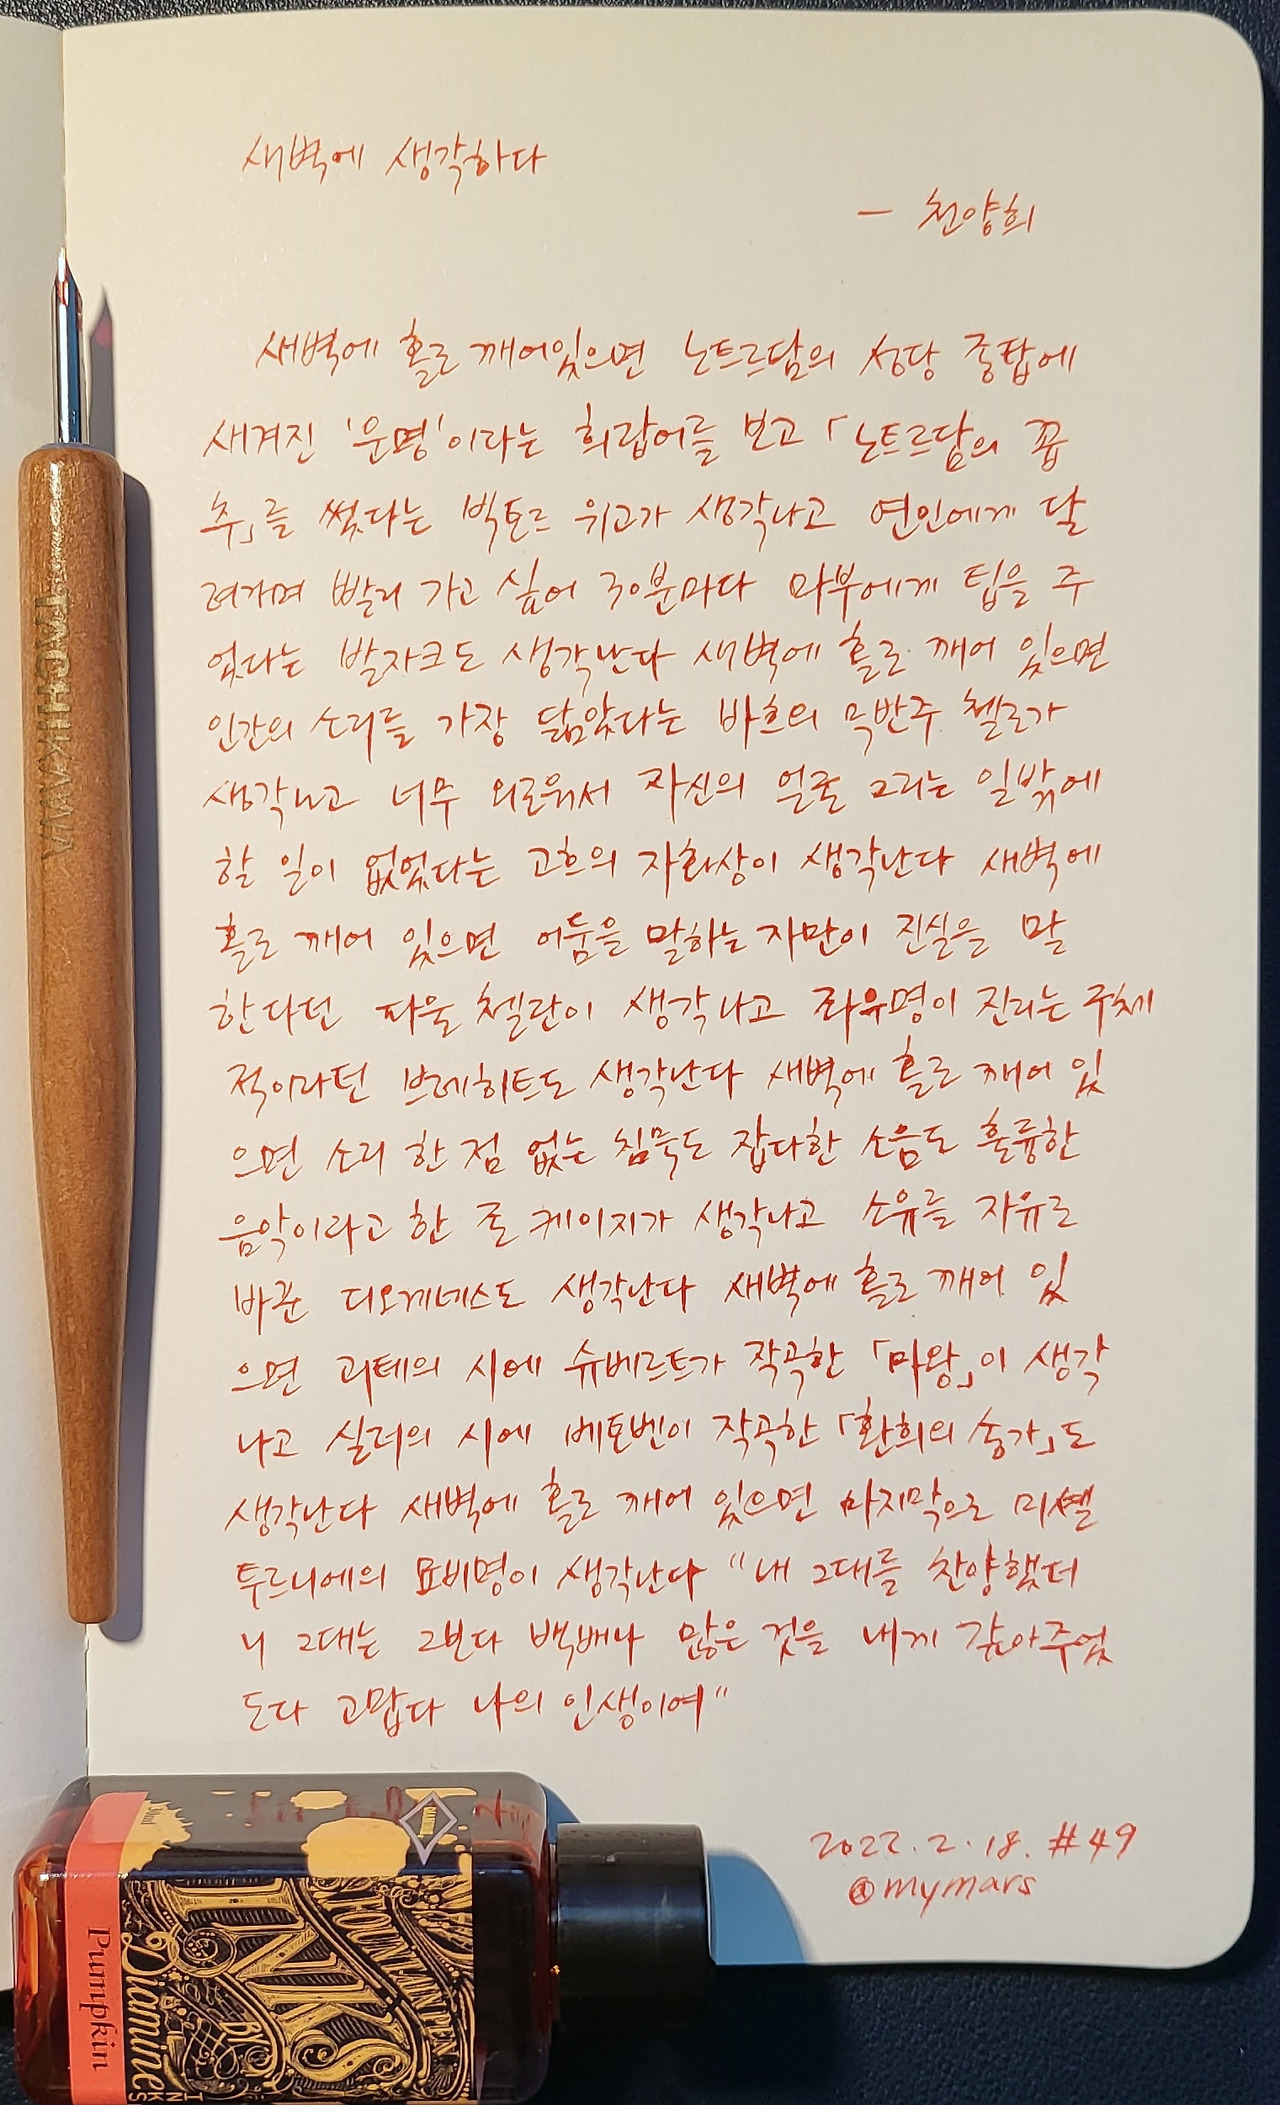 새벽에 생각하다
- 천양희
새벽에 홀로 깨어있으면 노트르담의 성당 종탑에
새겨진 '운명'이라는 희랍어를 보고 「노트르담의 꼽
추」를 썼다는 빅토르 위고가 생각나고 연인에게 달
려가며 빨리 가고 싶어 30분마다 마부에게 팁을 주
었다는 발자크도 생각난다 새벽에 홀로 깨어 있으면
인간의 소리를 가장 닮았다는 바흐의 무반주 첼로가
생각나고 너무 외로워서 자신의 얼굴 그리는 일밖에
할 일이 없었다는 고흐의 자화상이 생각난다 새벽에
홀로 깨어 있으면 어둠을 말하는 자만이 진실을 말
한다던 파울 첼란이 생각나고 좌우명이 진리는 구체
적이라던 브레히트도 생각난다 새벽에 홀로 깨어 있
으면 소리 한 점 없는 침묵도 잡다한 소음도 훌륭한
음악이라고 한 존 케이지가 생각나고 소유를 자유로
바꾼 디오게네스도 생각난다 새벽에 홀로 깨어 있
으면 괴테의 시에 슈베르트가 작곡한 「마왕」이 생각
나고 실러의 시에 베토벤이 작곡한 「환희의 송가」도
생각난다 새벽에 홀로 깨어 있으면 마지막으로 미셸
투르니에의 묘비명이 생각난다 "내 그대를 찬양했더
니 그대는 그보다 백배나 많은 것을 내게 갚아주었
도다 고맙다 나의 인생이여"
2022. 2. 18. #49
@mymars
TACHIKAWA
30ml
Pumpkin
Diamine
INKS
FOUNTAIN PEN
INKS
BY